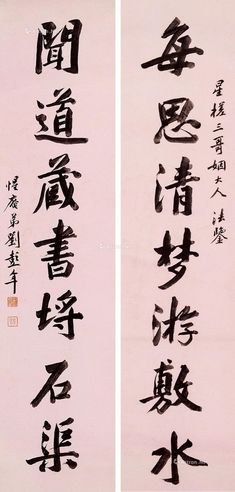 星槎三哥姻大人 法鑒
每思清梦游敷水
聞道蔵書埒石渠
惺庵弟劉彭年